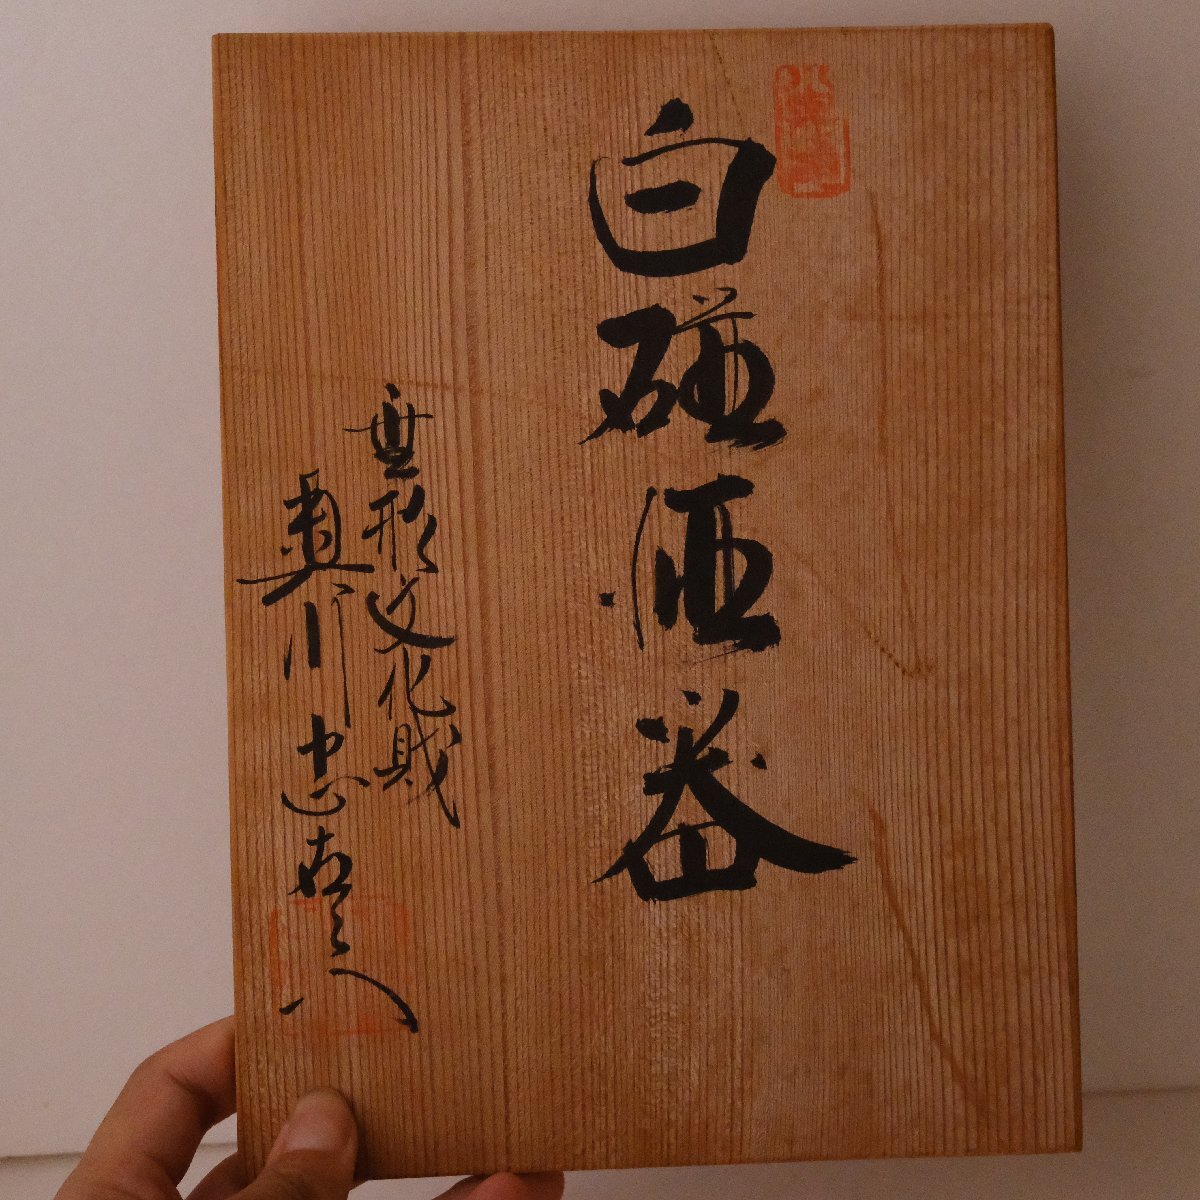 白磁酒器
無形文化財
奥川忠右エ門